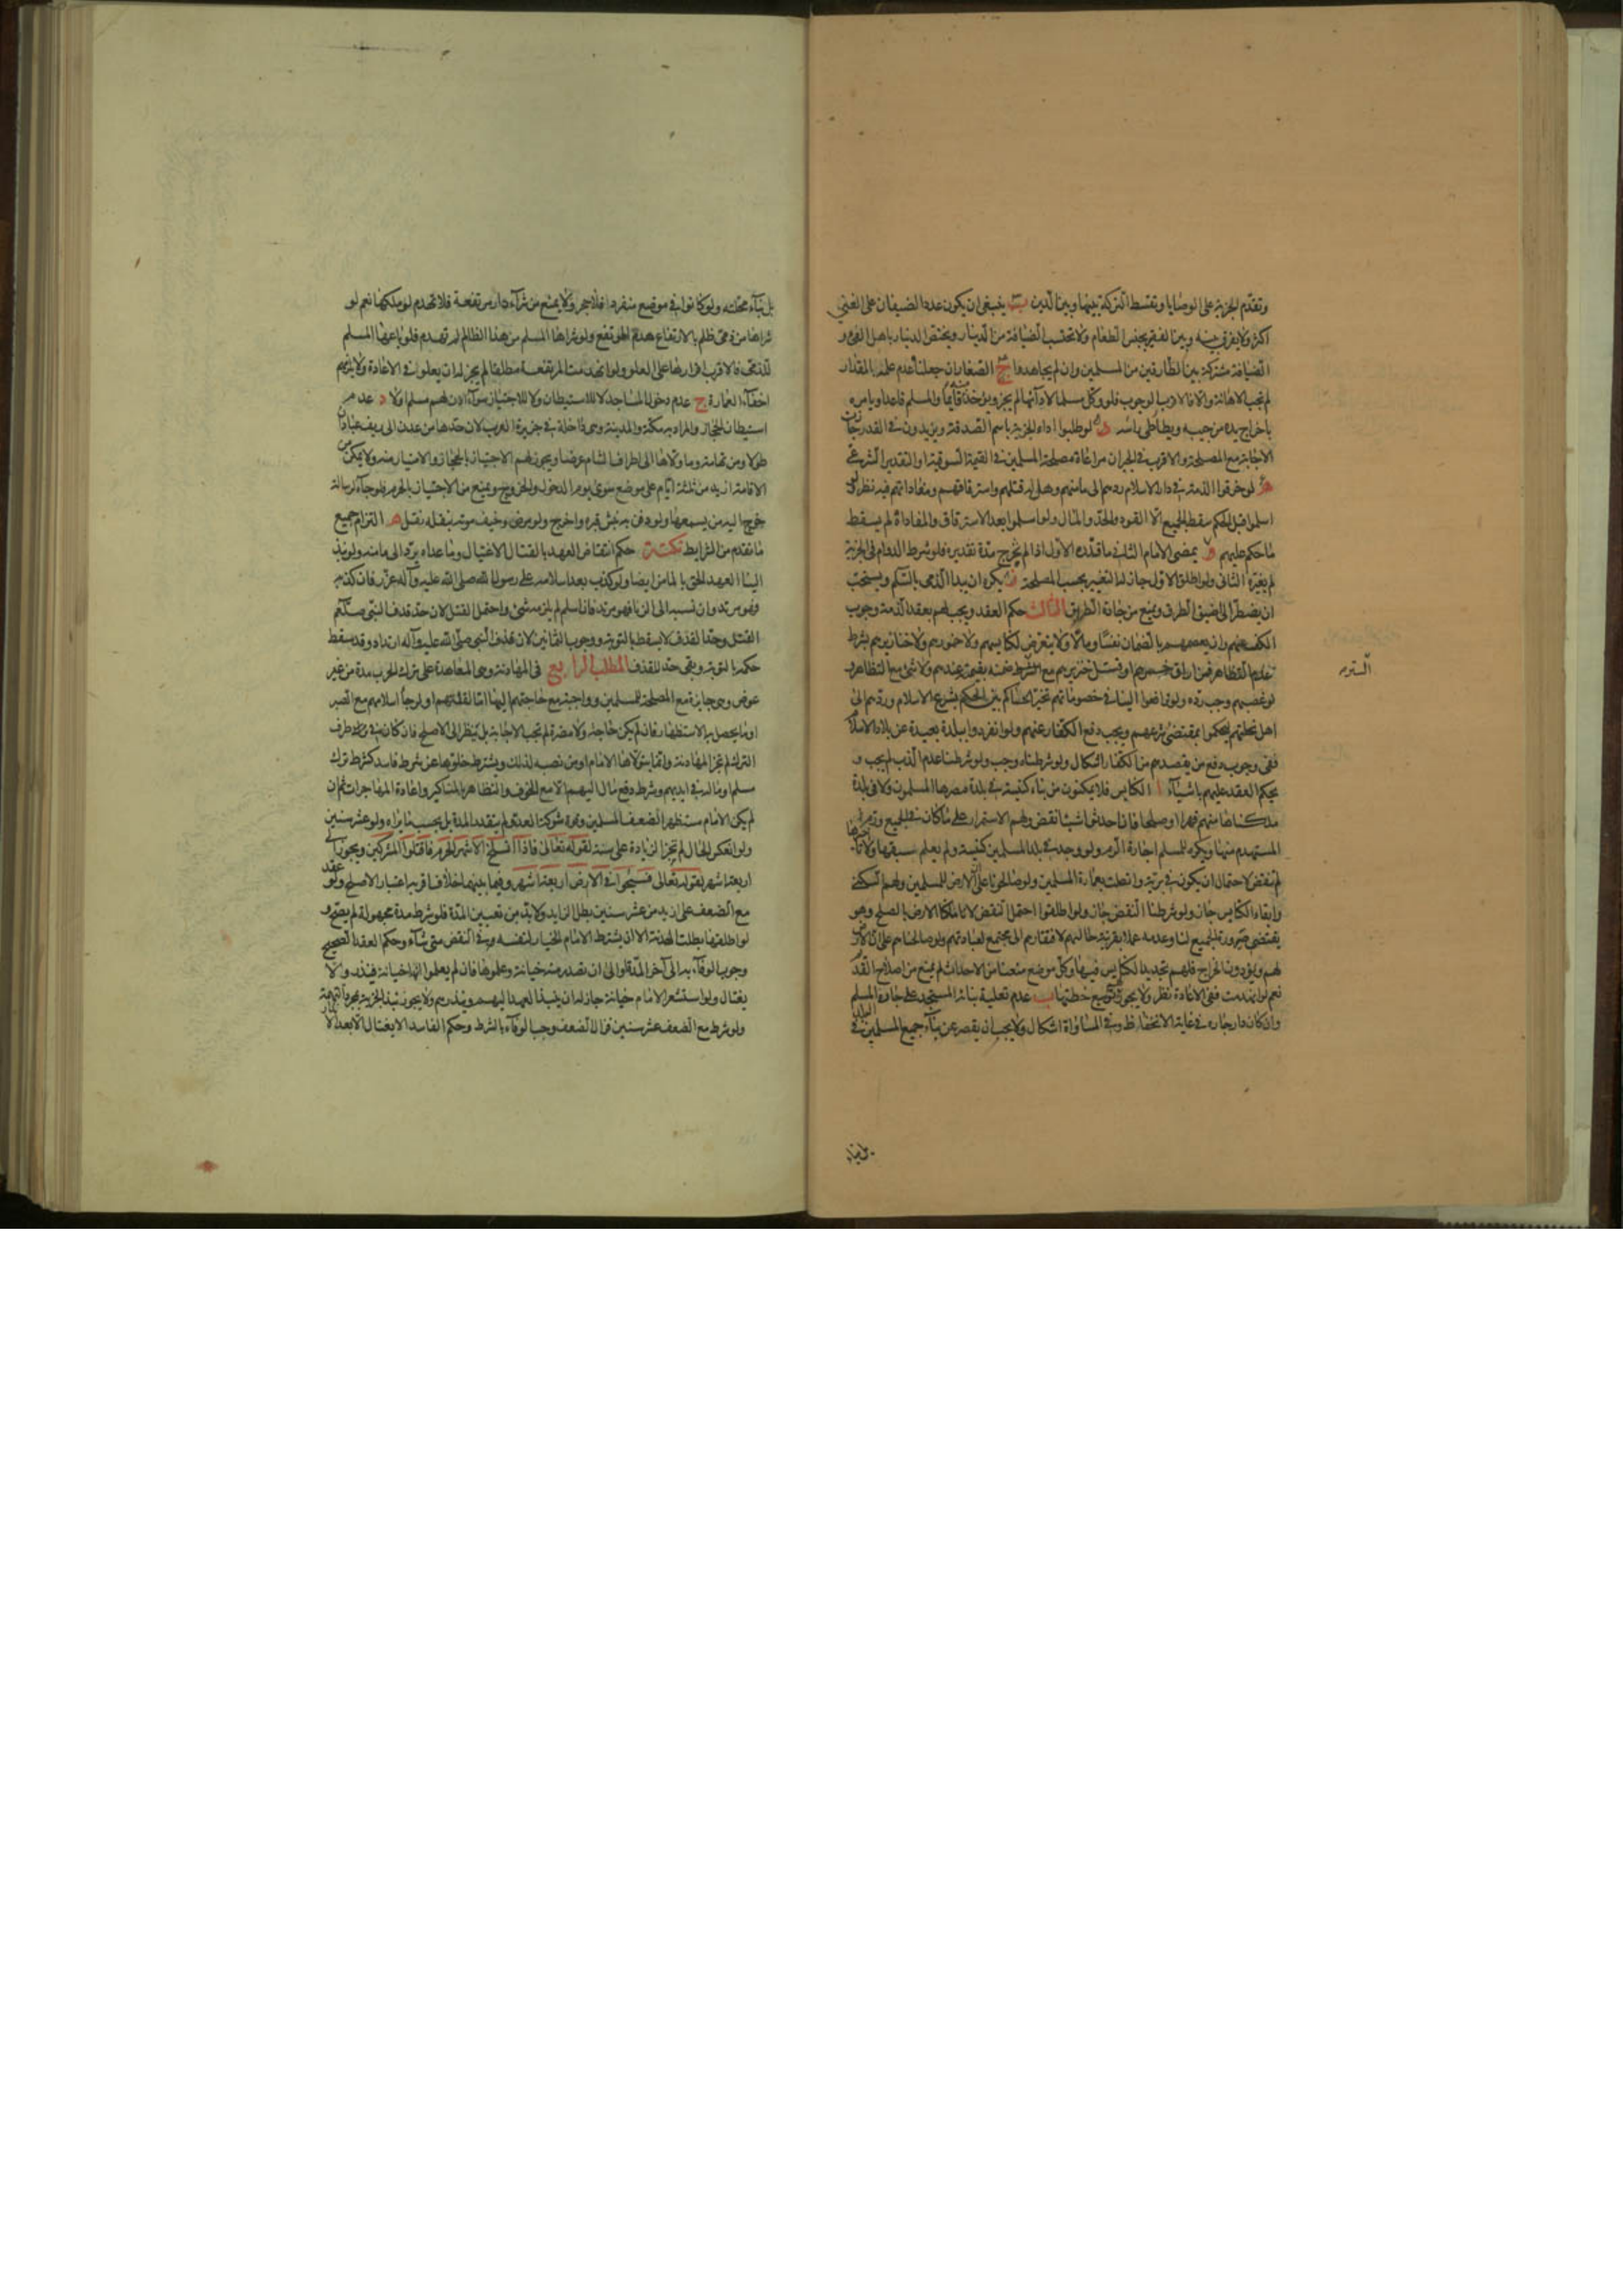 وتقدّم الجزية على الوصايا وتقسط التركة بينها وبين الدين ب ينبغي ان يكون عدد الضيفان على الغني
اكثر ولا يفرق بينه وبين الفقير بجنس الطعام ولا تحتسب الضيافة من الدينار ويختص الدينار باهل الفئ و
الضيافة مشتركة بين الطارقين من المسلمين وان لم يجاهدوا ج الصغار ان جعلناه عدم علمه المقدار
لم تجب الاهانة والا فالاقرب الوجوب فلو وكل مسلما لادائها لم يجز ويؤخذ منه قائما والمسلم قاعدا ويامره
باخراج يده من جيبه ويطأطئ راسه د لو طلبوا اداء الجزية باسم الصدقة ويزيدون في القدر جازت
الاجابة مع المصلحة والاقرب في الجبران مراعاة مصلحة المسلمين في القيمة السوقية او التقدير الشرعي
ه لو خرقوا الذمة في دار الاسلام ردهم الى مامنهم وهل له قتلهم واسترقاقهم ومفاداتهم فيه نظر لو
اسلموا قبل الحكم سقط الجميع الا القود والحد والمال ولو اسلموا بعد الاسترقاق والمفاداة لم يسقط
ما حكم عليهم و يمضي الامام الثاني ما قدره الاول اذا لم تخرج مدة تقديره فلو شرط الدوام في الجزية
لم يغيره الثاني ولو اطلق الاول جاز له التغيير بحسب المصلحة ز يكره ان يبدأ الذمي بالسلام ويستحب
ان يضطر الى اضيق الطرق ويمنع من جادة الطريق الثالث حكم العقد ويجب لهم بعقد الذمة وجوب
الكف عنهم وان يعصمهم بالضمان نفسا ومالا ولا يتعرض لكنايسهم ولا خمورهم ولا خنازيرهم بشرط
عدم التظاهر فمن اراق خمرهم او قتل خنزيرهم مع الستر ضمنه بقيمته عندهم ولا شئ مع التظاهر و
الستر
لو غصبهم وجب رده ولو ترافعوا الينا في خصوماتهم تخير الحاكم بين الحكم بشرع الاسلام وردهم الى
اهل نحلتهم ليحكموا بمقتضى شرعهم ويجب دفع الكفار عنهم ولو انفردوا ببلدة بعيدة عن بلاد الاسلام
ففي وجوب دفع من يقصدهم من الكفار اشكال ولو شرطناه وجب ولو شرطنا عدم الذب لم يجب و
يحكم العقد عليهم باشياء ا الكنايس فلا يمكنون من بناء كنيسة في بلدة مصرها المسلمون ولا في بلدة
ملكناها منهم قهرا او صلحا فان احدثوا شيئا نقض ولهم الاستمرار على ما كان في الجميع ورم
المستهدم منها ويكره للمسلم اجارة الرم ولو وجدت في بلد المسلمين كنيسة ولم يعلم سبقها ولا تاخرها
لم تنقض لاحتمال ان يكون في برية واتصلت بعمارة المسلمين ولو صالحونا على الارض للمسلمين ولهم السكنى
وابقاء الكنايس جاز ولو شرطنا النقض جاز ولو اطلقوا احتمل النقض لانا ملكنا الارض بالصلح وهو
يقتضي صيرورة الجميع لنا وعدمه عملا بقرينة حالهم لافتقارهم الى مجتمع لعبادتهم ولو صالحناهم على ان الارض
لهم ويؤدون الخراج فلهم تجديد الكنايس فيها وكل موضع منعنا من الاحداث لم يمنع من اصلاح القديم
نعم لو انهدمت ففي الاعادة نظر ولا يجوز توسيع خطتها ب عدم تعلية بنائه المستجد على جاره المسلم
وان كان دار جاره في غاية الانخفاض وفي المساواة اشكال ولا يجب ان يقصر عن بناء جميع المسلمين في البلد
بل بناء
بل بناء محلته ولو كانوا في موضع منفرد فلا حجر ولا يمنع من شراء دار مرتفعة فلا تهدم لو ملكها نعم لو
شراها من ذمي ظلم بالارتفاع هدم المرتفع ولو شراها المسلم من هذا الظالم لم تهدم فلو باعها المسلم
للذمي فالاقرب اقرارها على العلو ولو انهدمت المرتفعة مطلقا لم يجز له ان يعلو في الاعادة ولا يلزمهم
اخفاء العمارة ج عدم دخول المساجد لا للاستيطان ولا للاجتياز سواء اذن لهم مسلم او لا د عدم
استيطان الحجاز والمراد به مكة والمدينة وهي داخلة في جزيرة العرب لان حدها من عدن الى ريف عبادان
طولا ومن تهامة وما والاها الى اطراف الشام عرضا ويجوز لهم الاجتياز بالحجاز والامتيار منه ولا يمكن من
الاقامة ازيد من ثلثة ايام على موضع سوى يوم الدخول والخروج ويمنع من الاجتياز بالحرم فلو جاء لرسالة
خرج اليه من يسمعها ولو دفن به نبش قبره واخرج ولو مرض وخيف موته بنقله نقل ه التزام جميع
ما تقدم من الشرايط نكتة حكم انتقاض العهد بالقتال الاغتيال وما عداه يرد الى مامنه ولو نبذ
الينا العهد الحق بالمامن ايضا ولو كذب بعد اسلامه على رسول الله صلى الله عليه وآله عزر فان كذبه
فهو مرتد وان نسبه الى الزنا فهو مرتد فان اسلم لم يلزمه شئ واحتمل القتل لان حد قذف النبي صلعم
القتل وحد القذف لا يسقط بالتوبة ووجوب الثمانين لان قذف النبي صلى الله عليه وآله ارتداد وقد سقط
حكمه بالتوبة وبقي حد القذف المطلب الرابع في المهادنة وهي المعاهدة على ترك الحرب مدة من غير
عوض وهي جايزة مع المصلحة للمسلمين وواجبة مع حاجتهم اليها اما لقلتهم او لرجاء اسلامهم مع الصبر
او ما يحصل به الاستظهار فان لم يكن حاجة ولا مضرة لم تجب الاجابة بل ينظر الى الاصلح فان كان في طرف
الترك لم تجز المهادنة وانما يتولاها الامام او من نصبه لذلك ويشترط خلوها عن شرط فاسد كشرط ترك
مسلم او ماله في ايديهم وشرط دفع مال اليهم الا مع الخوف والتظاهر بالمناكير واعادة المهاجرات ثم ان
لم يكن الامام مستظهرا لضعف المسلمين وقوة شوكة العدو لم يتقدر المدة بل بحسب ما يراه ولو عشر سنين
ولو انعكس الحال لم تجز الزيادة على سنة لقوله تعالى فاذا انسلخ الاشهر الحرم فاقتلوا المشركين ويجوز
اربعة اشهر لقوله تعالى فسيحوا في الارض اربعة اشهر وفيما بينهما خلاف اقربه اعتبار الاصلح ولو عقد
مع الضعف على ازيد من عشر سنين بطل الزايد ولا بد من تعيين المدة فلو شرط مدة مجهولة لم يصح و
لو اطلقها بطلت الهدنة الا ان يشترط الامام الخيار لنفسه في النقض متى شاء وحكم العقد الصحيح
وجوب الوفاء به الى آخر المدة او الى ان تصدر منه خيانة وعلموها فان لم يعلموا انها خيانة فينذر والا
يغتال ولو استشعر الامام خيانة جاز له ان ينبذ العهد اليهم وينذرهم ولا يجوز نبذ الجزية بمجرد التهمة
ولو شرط مع الضعف عشر سنين فزال الضعف وجب الوفاء بالشرط وحكم الفاسد الا يغتال الا بعد الانذار